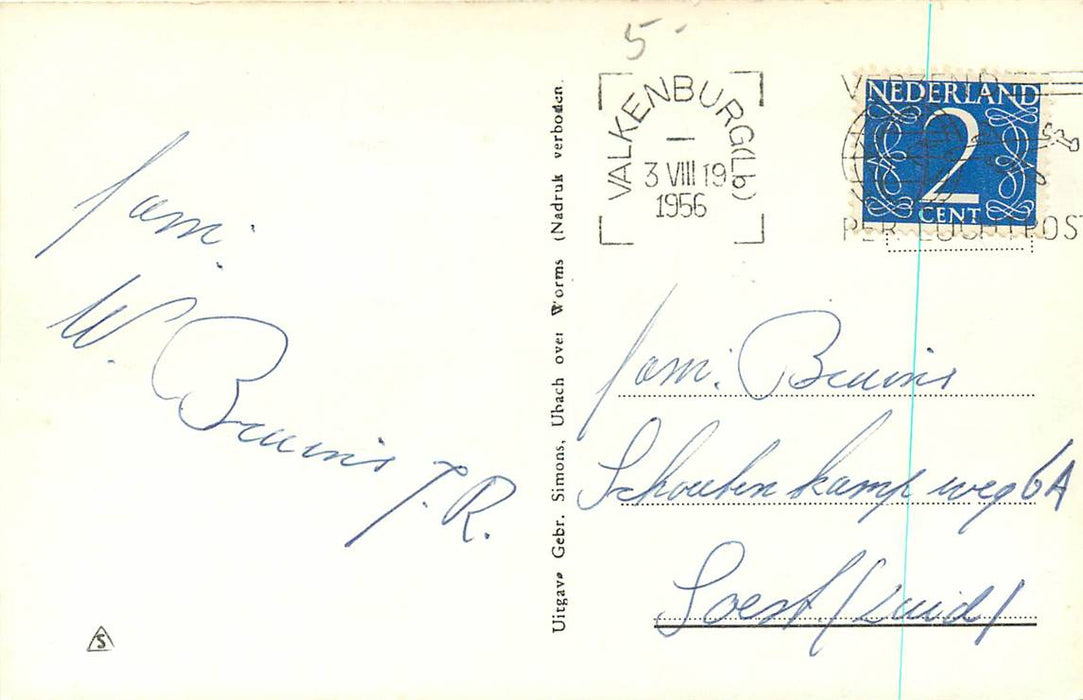 fam.
W. Bruins J.R.
S
Uitgave Gebr. Simons, Ubach over Worms (Nadruk verboden.
5-
VALKENBURG (Lb)
3 VIII 19
1956
VERZEND
PER LUCHTPOST
NEDERLAND
2
CENT
fam. Bruins
Schoutenkampweg 6A
Soest (Zuid)